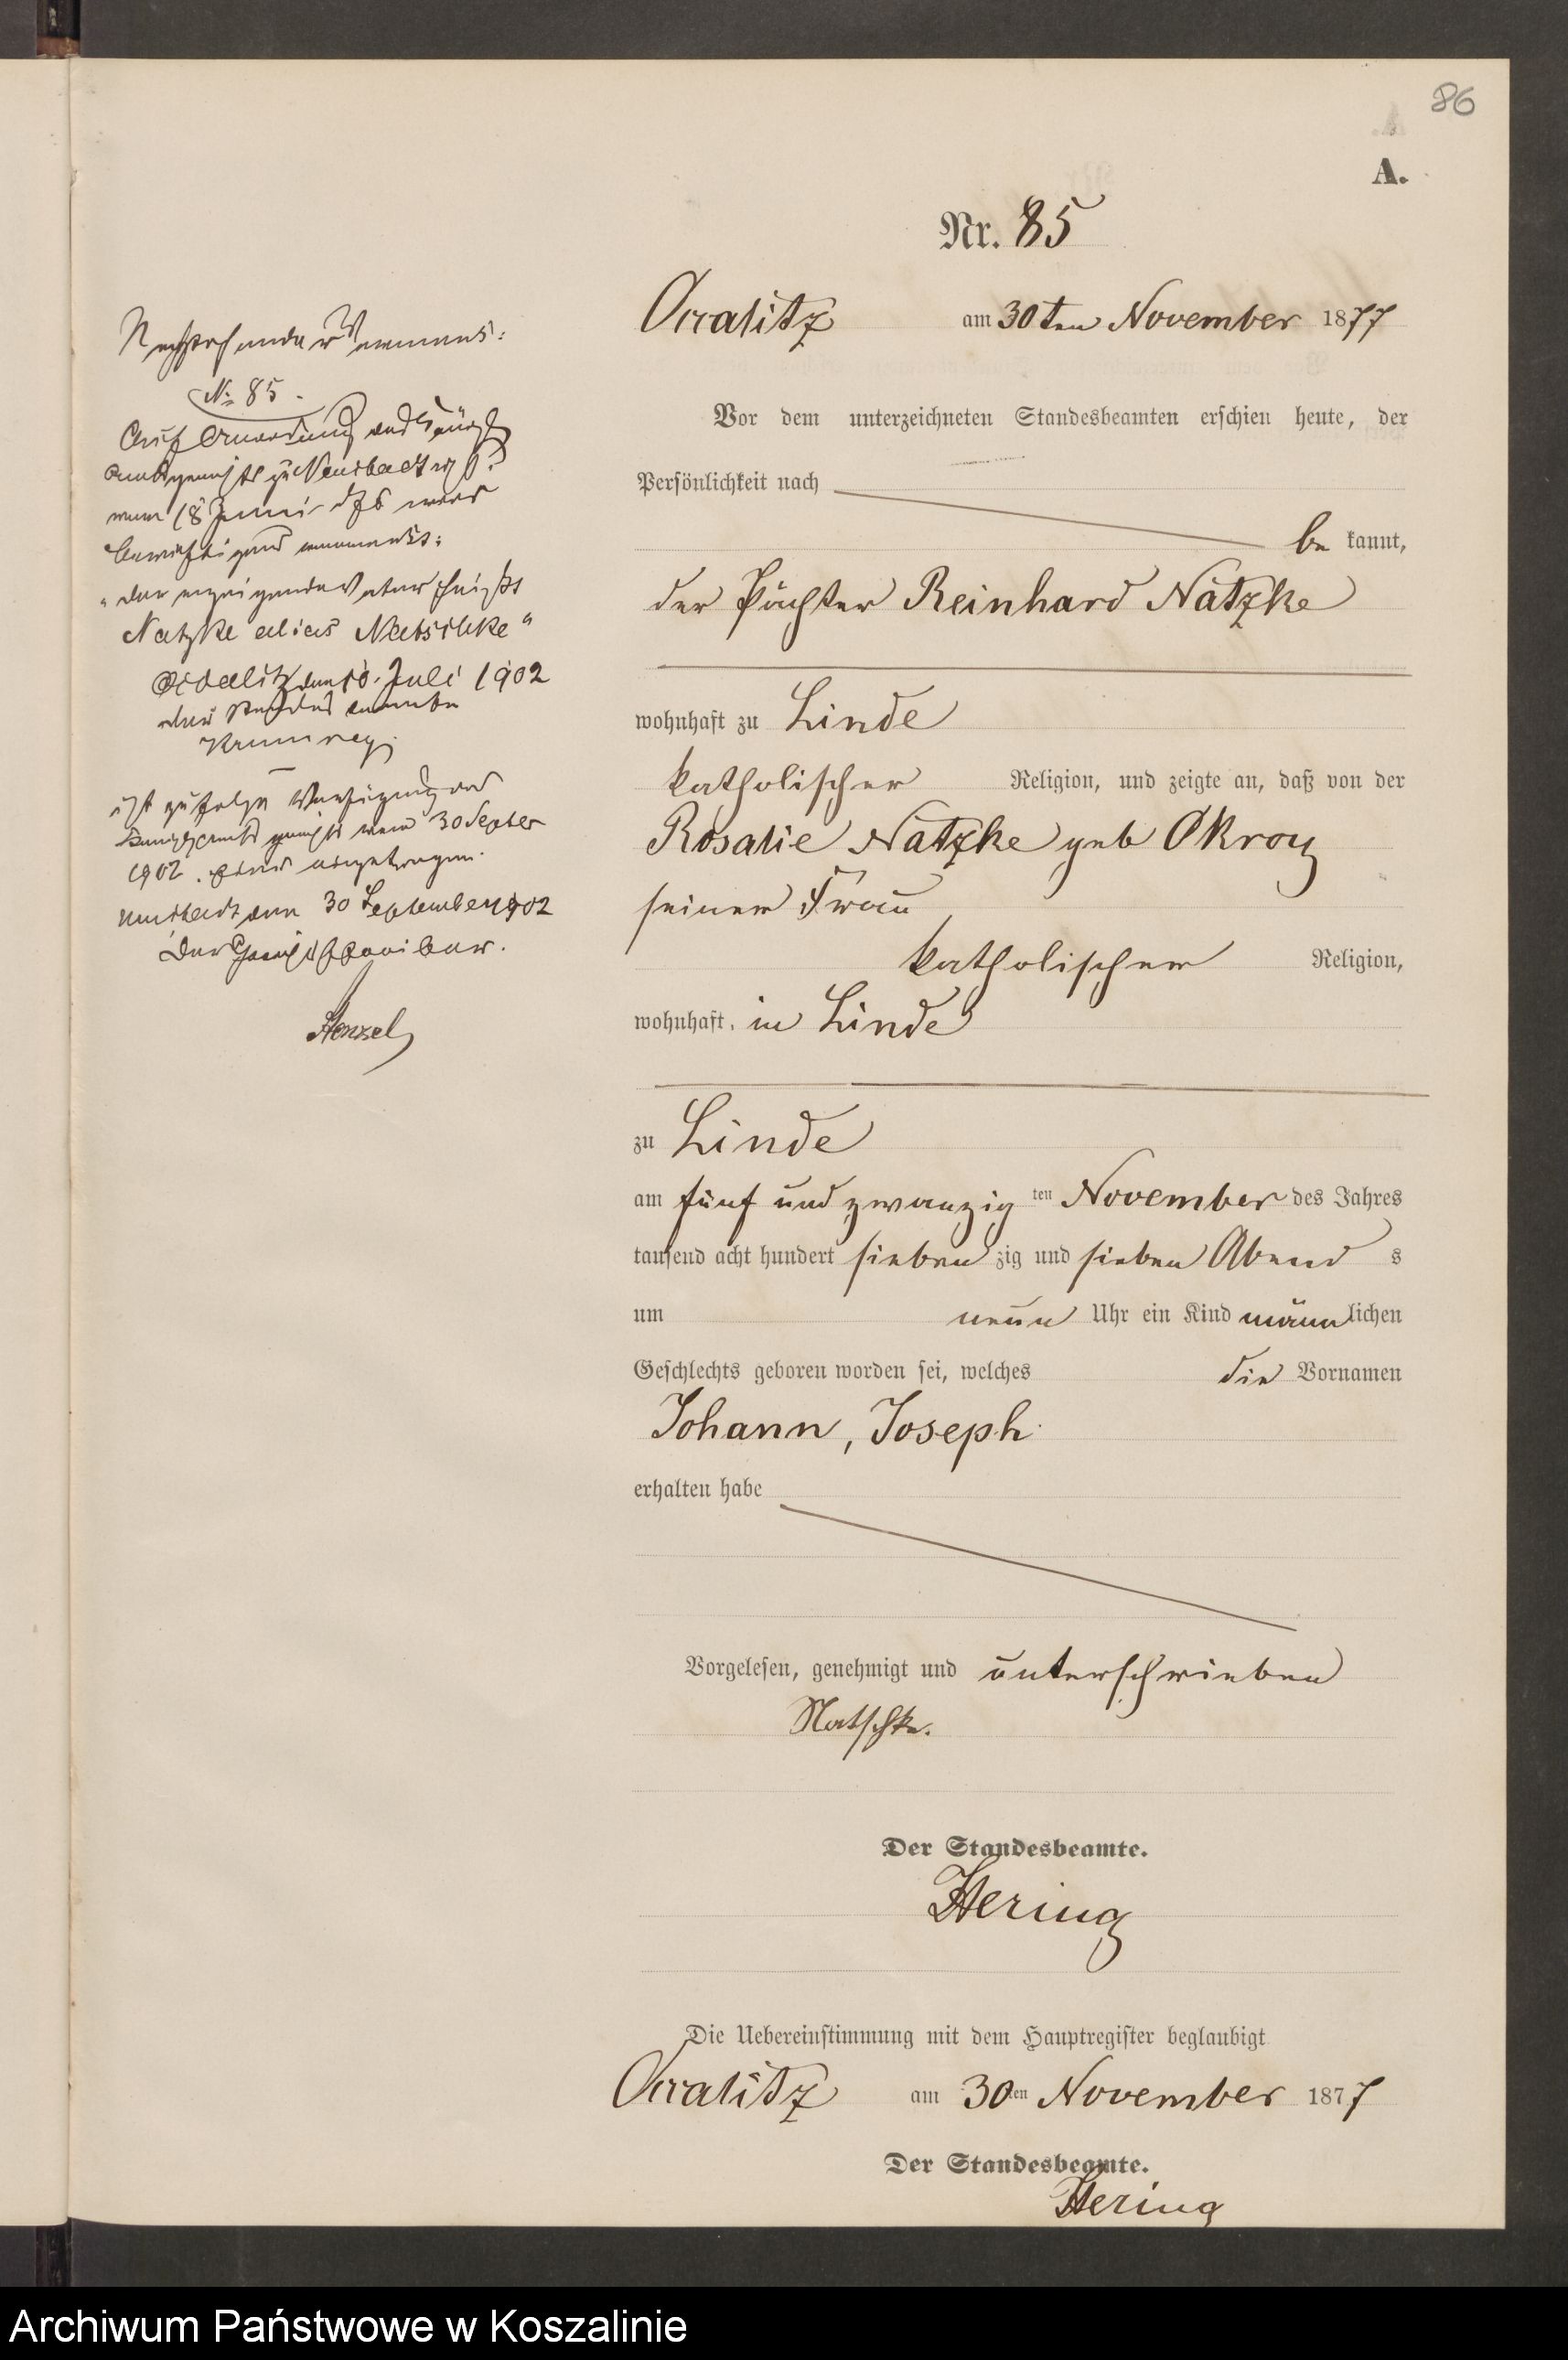 86
A.
Nr. 85
Occalitz am 30ten November 1877
Vor dem unterzeichneten Standesbeamten erschien heute, der
Persönlichkeit nach
be kannt,
der Pächter Reinhard Natzke
wohnhaft zu Linde
katholischer Religion, und zeigte an, daß von der
Rosalie Natzke geb Okroy
seiner Frau
katholischer Religion,
wohnhaft in Linde
zu Linde
am fünf und zwanzig ten November des Jahres
tausend acht hundert sieben zig und sieben Abend s
um neun Uhr ein Kind männ lichen
Geschlechts geboren worden sei, welches die Vornamen
Johann, Joseph
erhalten habe
Vorgelesen, genehmigt und unterschrieben
Natschke.
Der Standesbeamte.
Hering
Die Uebereinstimmung mit dem Hauptregister beglaubigt
Occalitz am 30ten November 1877
Der Standesbeamte.
Hering
Nachstehender Vermerk:
No 85.
Auf Anordnung des Königl
Amtsgerichts zu Neustadt
vom 18 Juni d Js wird
berichtigend vermerkt:
"der anzeigende Vater heißt
Natzke alias Natschke"
Occalitz den 10. Juli 1902
der Standesbeamte
ist zufolge Verfügung des
Königl Amtsgerichts vom 30 Septber
1902 eingetragen.
Neustadt den 30 September 1902
Der Gerichtsschreiber.
Henzel
Archiwum Państwowe w Koszalinie